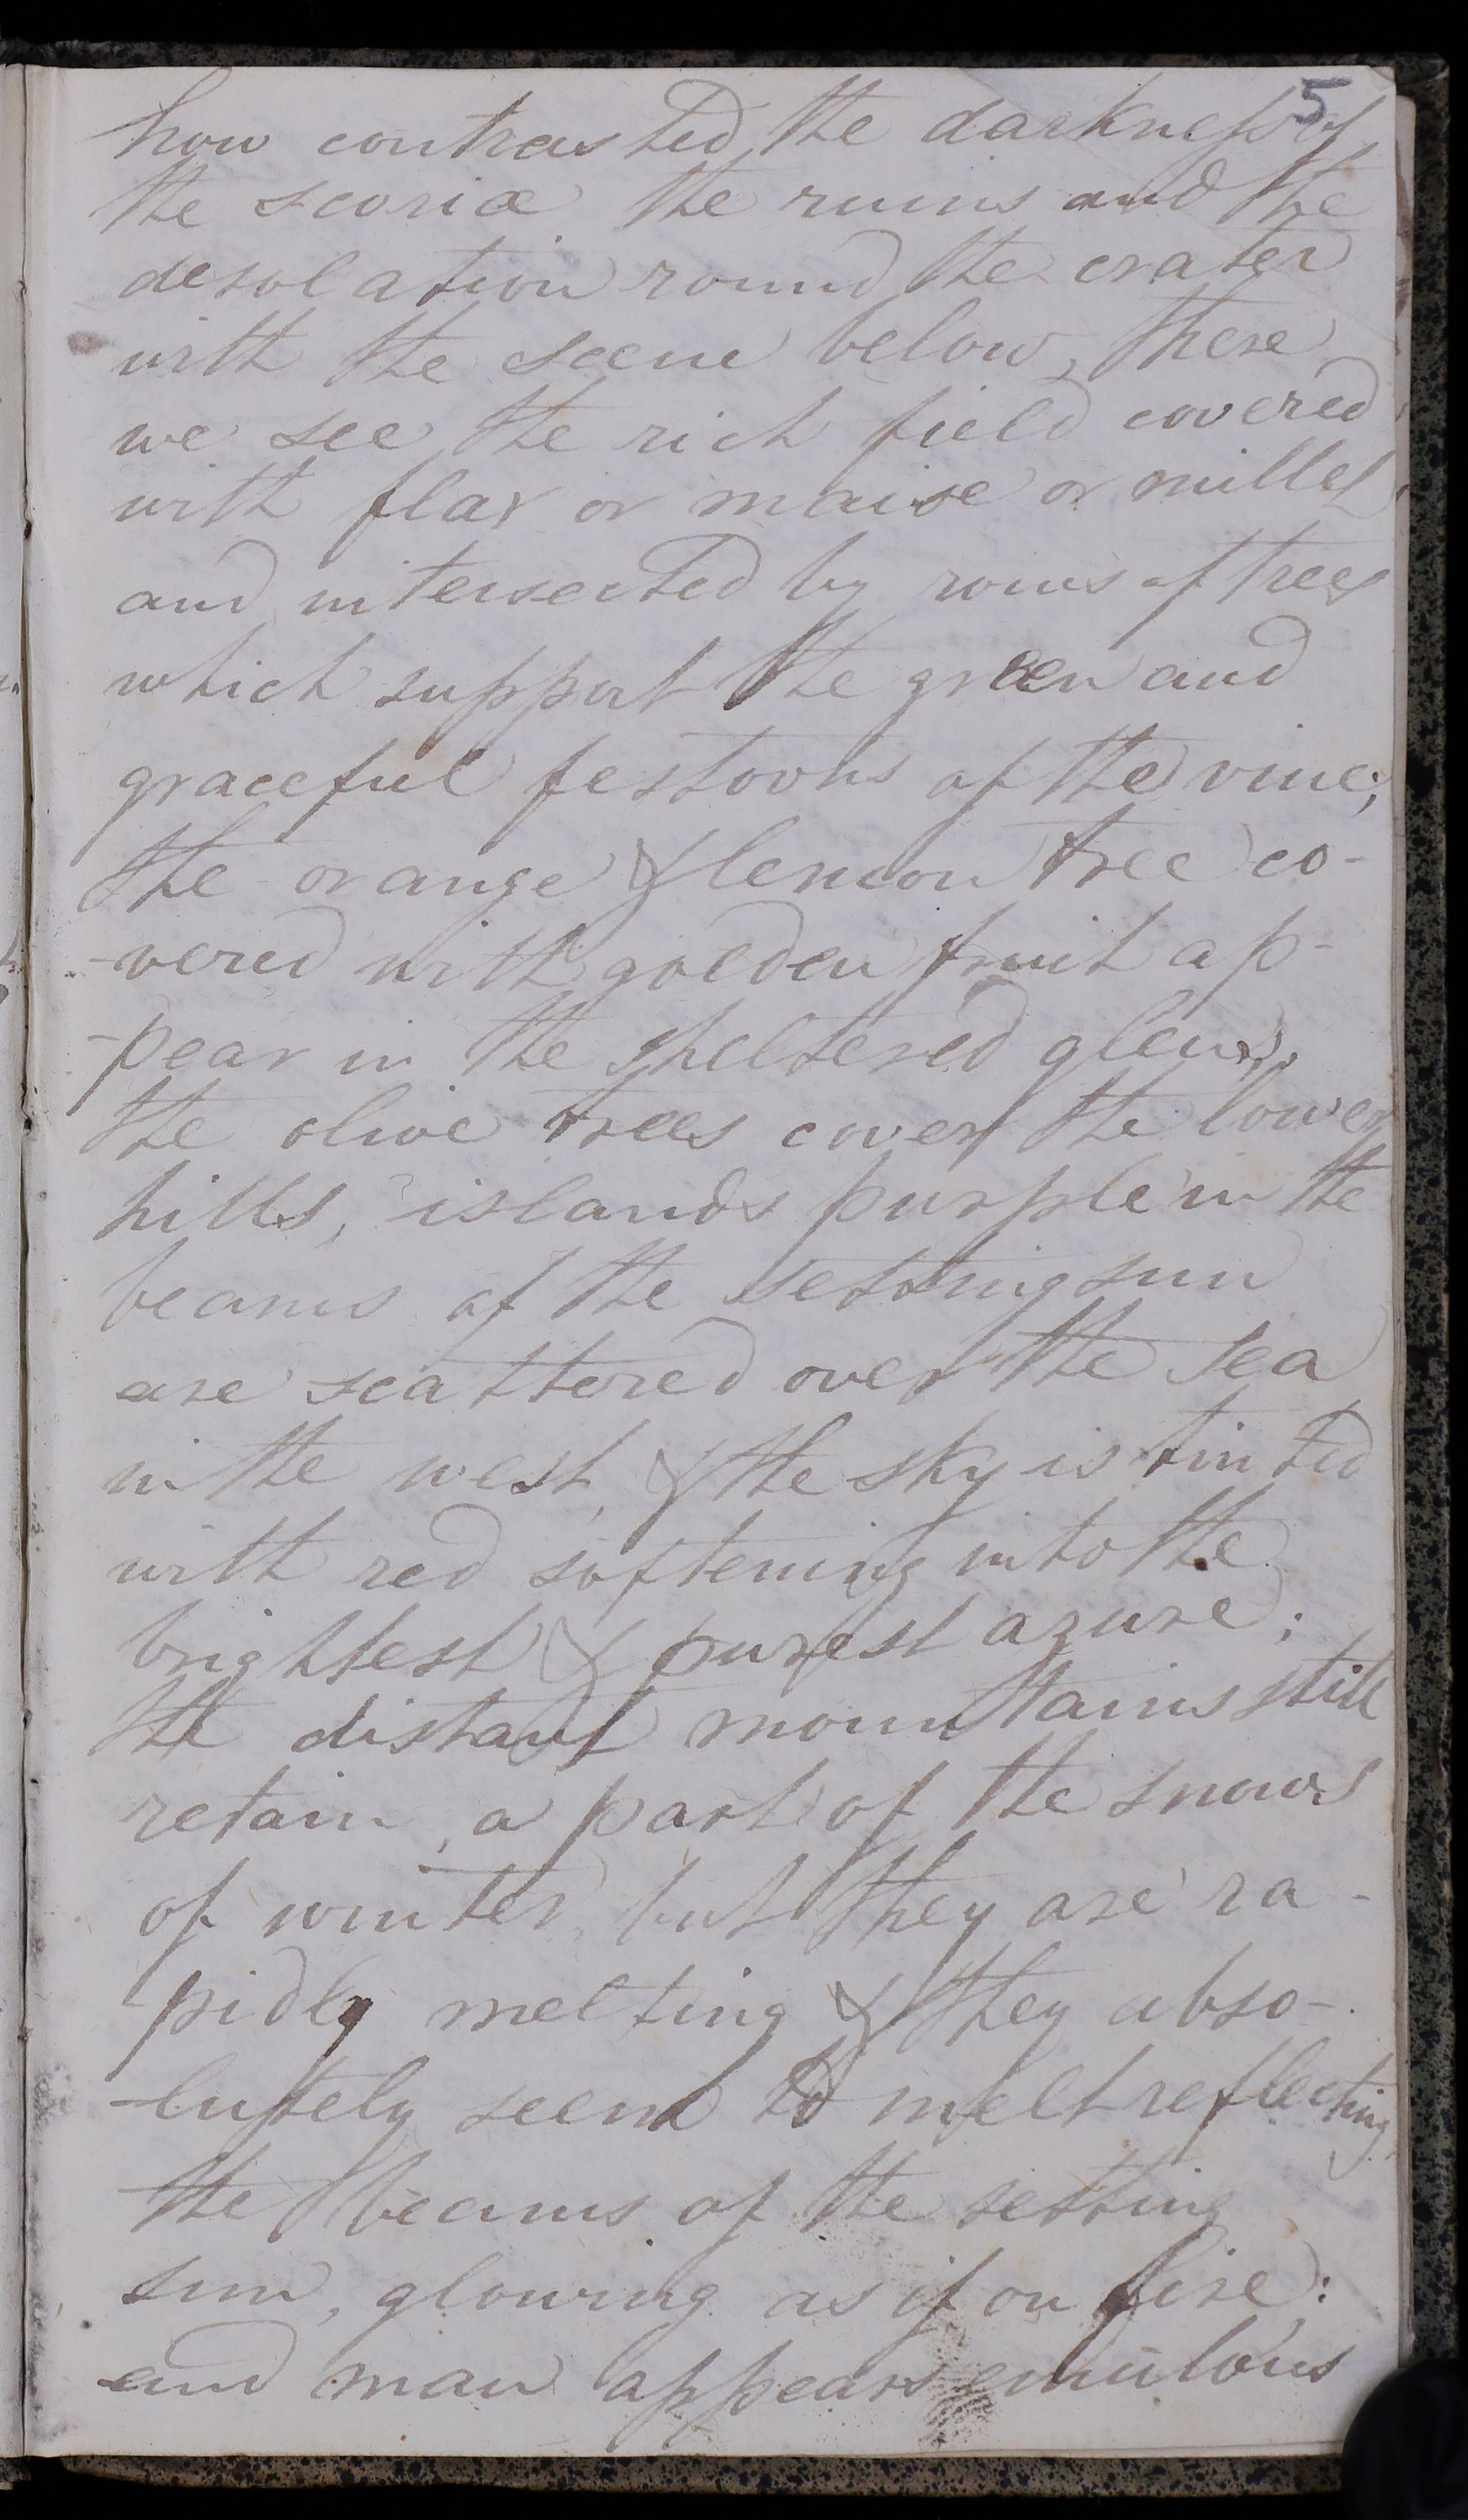 5
how contrasted the darkness of
the scoriæ the ruins and the
desolation round the crater
with the scene below, there
we see the rich field covered
with flax or maise or millet
and intersected by rows of trees
which support the green and
graceful festoons of the vine;
the orange & lemon tree co-
-vered with golden fruit ap-
-pear in the sheltered glens,
the olive trees cover the lower
hills, islands purple in the
beams of the setting sun
are scattered over the sea
in the west, & the sky is tinted
with red softening into the
brightest & purest azure;
the distant mountains still
retain, a part of the snows
of winter, but they are ra-
pidly melting & they abso-
-lutely seem to melt reflecting
the beams of the setting
sun, glowing as if on fire:
and man appears emulous